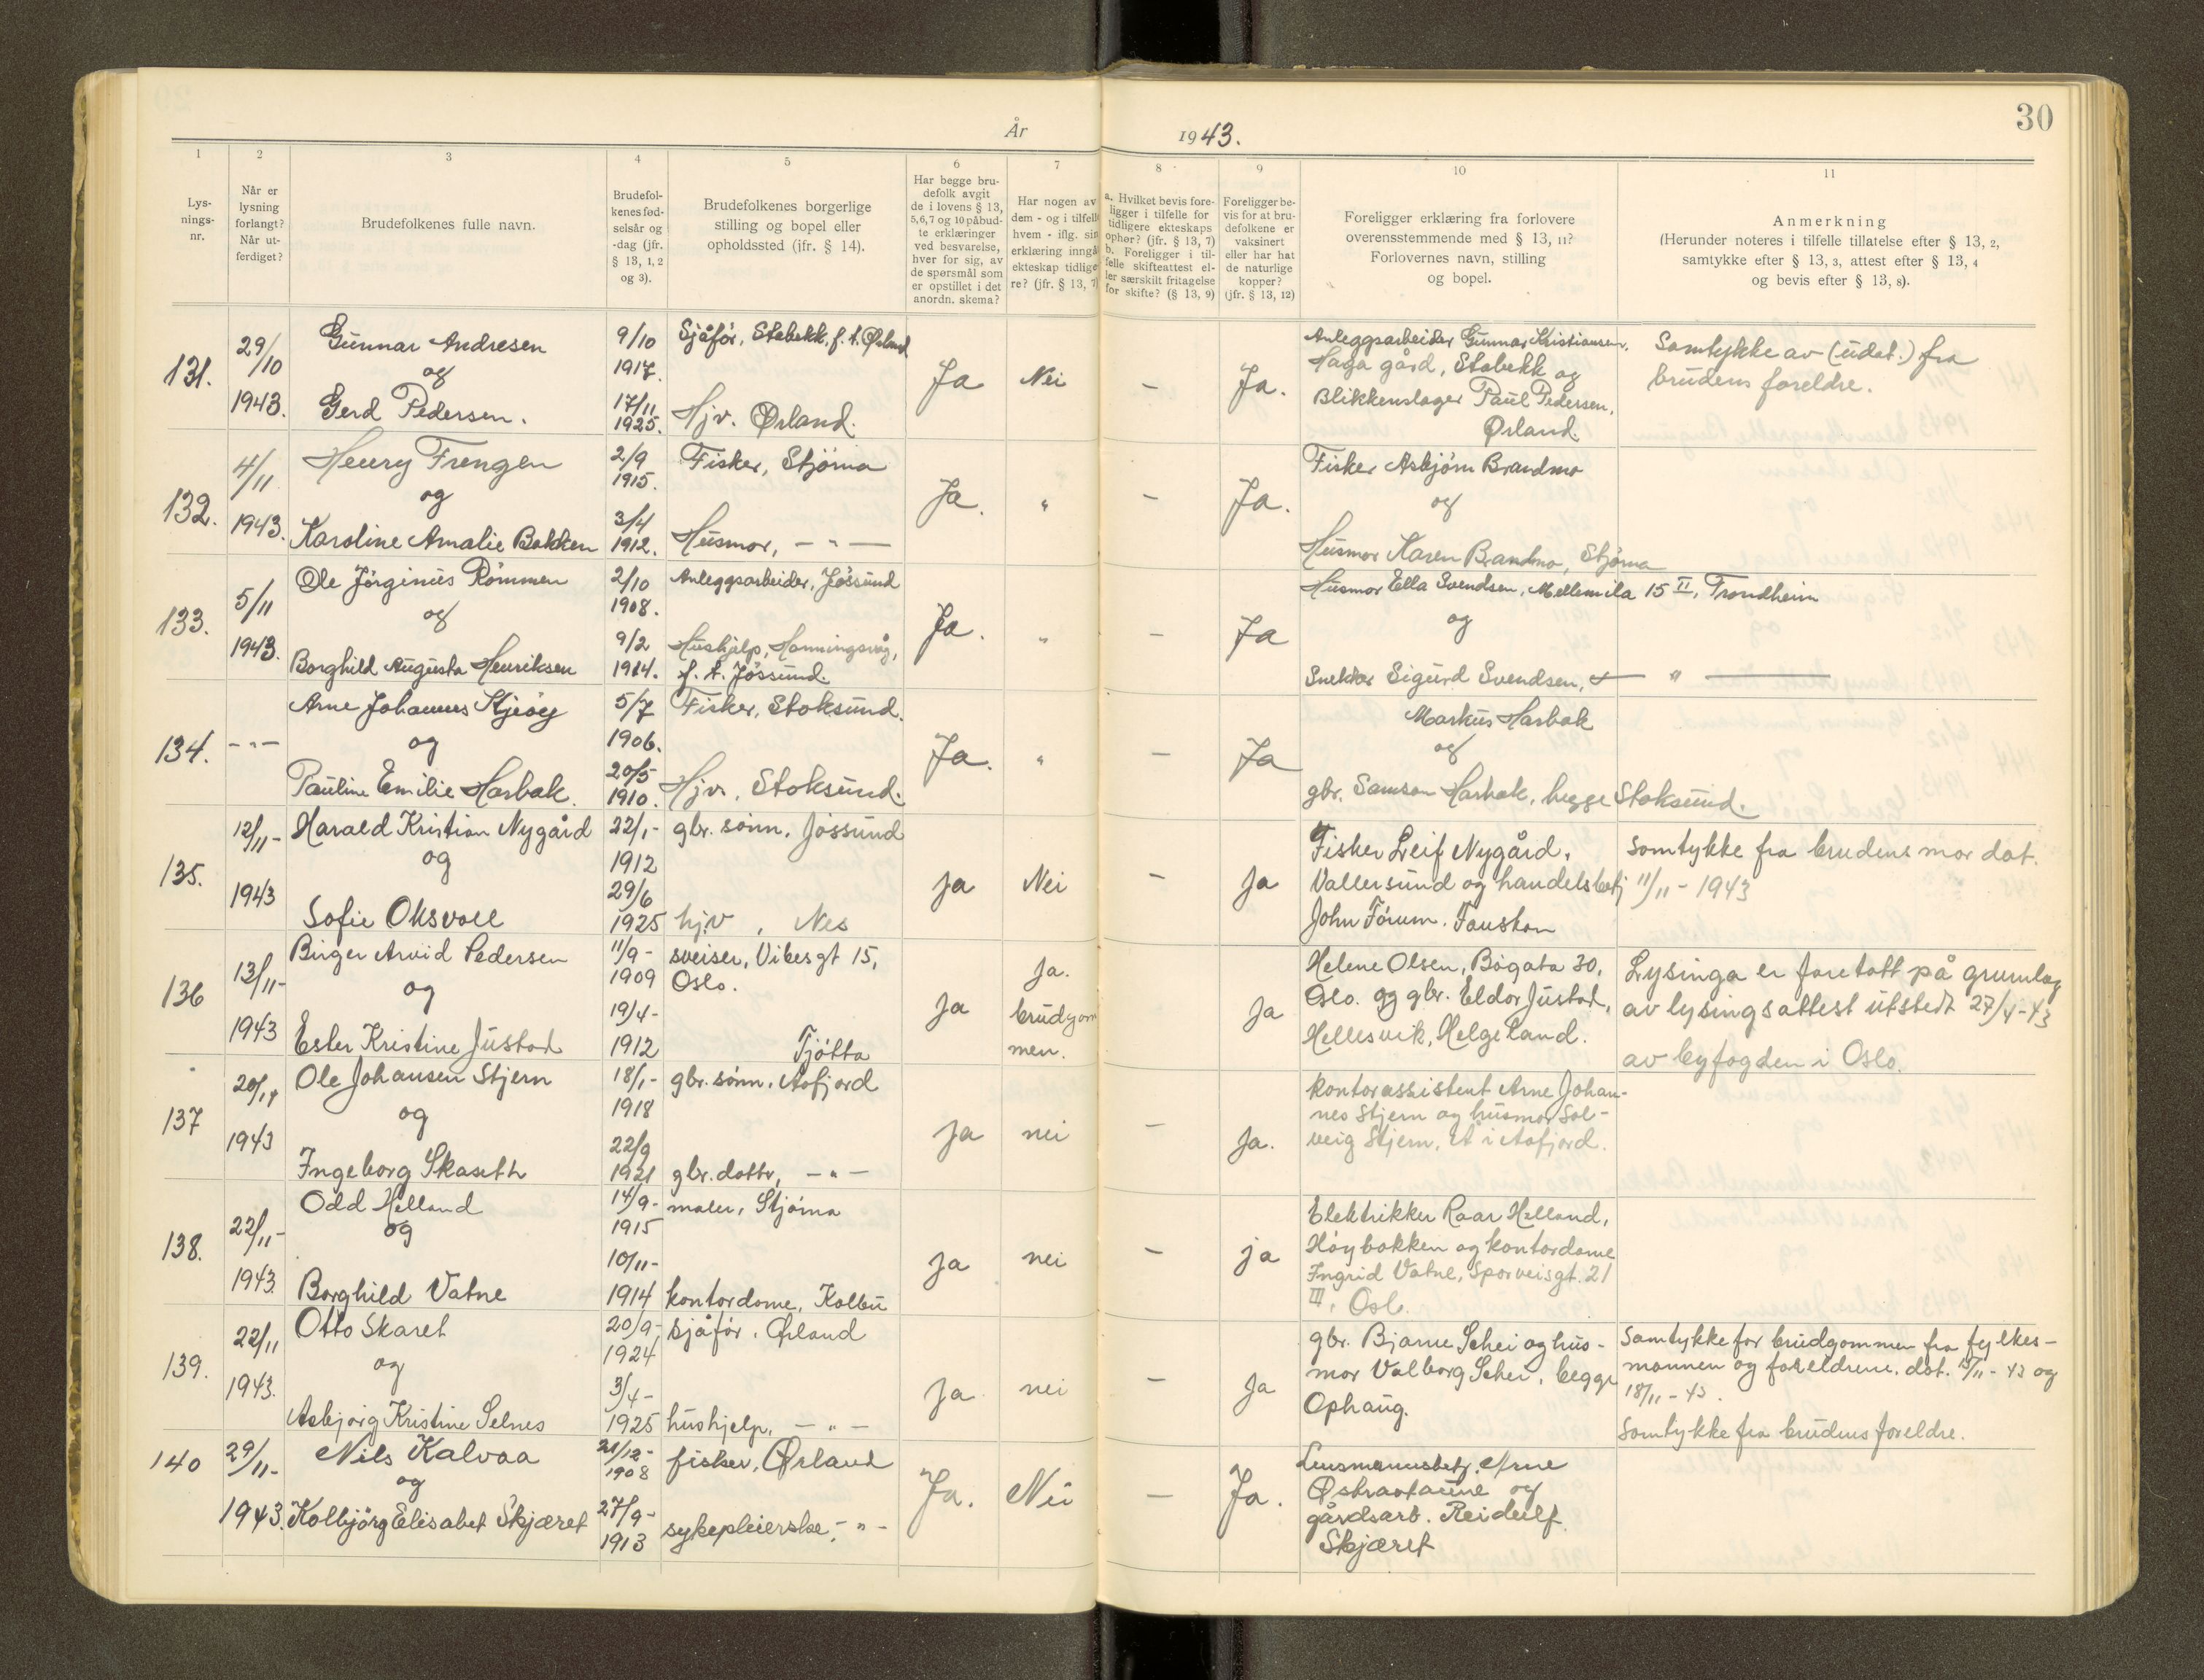 30
År
1943.
1
2
3
4
5
6
7
8
9
10
11
Lys-
nings-
nr.
Når er
lysning
forlangt?
Når ut-
ferdiget?
Brudefolkenes fulle navn.
Brudefol-
kenes fød-
selsår og
-dag (jfr.
§ 13, 1, 2
og 3).
Brudefolkenes borgerlige
stilling og bopel eller
opholdssted (jfr. § 14).
Har begge bru-
defolk avgit
de i lovens § 13,
5, 6, 7 og 10 påbud-
te erklæringer
ved besvarelse,
hver for sig, av
de spørsmål som
er opstillet i det
anordn. skema?
Har nogen av
dem - og i tilfelle
hvem - iflg. sin
erklæring inngå
ekteskap tidlige
re? (jfr. § 13, 7)
a. Hvilket bevis fore-
ligger i tilfelle for
tidligere ekteskaps
ophør? (jfr. § 13, 7)
b. Foreligger i til-
felle skifteattest el-
ler særskilt fritagelse
for skifte? (§ 13, 9)
Foreligger be-
vis for at bru-
defolkene er
vaksinert
eller har hat
de naturlige
kopper?
(jfr. § 13, 12)
Foreligger erklæring fra forlovere
overensstemmende med § 13, 11?
Forlovernes navn, stilling
og bopel.
Anmerkning
(Herunder noteres i tilfelle tillatelse efter § 13, 2,
samtykke efter § 13, 3, attest efter § 13, 4
og bevis efter § 13, 8).
131.
29/10
1943.
Gunnar Andresen
og
Gerd Pedersen.
9/10
1917.
17/11
1925.
Sjåfør, Stabekk, f. t. Ørland
Hjv. Ørland.
Ja
Nei
-
Ja.
Anleggsarbeider Gunnar Kristiansen,
Haga gård, Stabekk og
Blikkenslager Paul Pedersen,
Ørland.
Samtykke av (udat.) fra
brudens foreldre.
132.
4/11
1943.
Henry Frengen
og
Karoline Amalie Bakken
2/9
1915.
3/4
1912.
Fisker, Stjørna
Husmor, - " -
Ja.
"
-
Ja.
Fisker Asbjørn Brandmo
og
Husmor Karen Brandmo, Stjørna
133.
5/11
1943.
Ole Jørginus Rømmen
og
Borghild Augusta Henriksen
2/10
1908.
9/2
1914.
Anleggsarbeider, Jøssund
Hushjelp, Honningsvåg,
f. t. Jøssund.
Ja.
"
-
Ja
Husmor Ella Svendsen, Mellemila 15 II, Trondheim
og
Snekker Sigurd Svendsen, - " -
134.
- " -
Arne Johannes Kjeøy
og
Pauline Emilie Harbak.
5/7
1906.
20/5
1910.
Fisker, Stoksund.
Hjv., Stoksund.
Ja.
"
-
Ja
Markus Harbak
og
gbr. Samson Harbak, begge Stoksund.
135.
12/11-
1943
Harald Kristian Nygård
og
Sofie Oksvoll
22/1-
1912
29/6
1925
gbr. sønn, Jøssund
hjv, Nes
Ja
Nei
-
Ja
Fisker Leif Nygård,
Vallersund og handelsbetj
John Förum. Fauskan
Samtykke fra brudens mor dat.
11/11-1943
136
13/11-
1943
Birger Arvid Pedersen
og
Ester Kristine Justad
11/9-
1909
19/4-
1912
sveiser, Vibesgt 15,
Oslo.
Tjøtta
Ja
Ja.
brudgom
men.
Ja
Helene Olsen, Bøgata 30,
Oslo. og gbr. Eldor Justad,
Hellesvik, Helgeland.
Lysinga er foretatt på grunnlag
av lysingsattest utstedt 27/4-43
av byfogden i Oslo.
137
20/11
1943
Ole Johansen Stjern
og
Ingeborg Skaseth
18/1-
1918
22/9
1921
gbr. sønn, Aafjord
gbr. dotter, - " -
Ja
nei
-
Ja.
Kontorassistent Arne Johan-
nes Stjern og husmor Sol-
veig Stjern, Å i Aafjord.
138.
22/11-
1943.
Odd Helland
og
Borghild Vatne
14/9-
1915
10/11-
1914
maler, Stjørna
kontordame, Kolbu
Ja
nei
-
ja
Elektrikker Roar Helland,
Høybakken og kontordame
Ingrid Vatne, Sporveisgt. 21
III, Oslo.
139.
22/11
1943.
Otto Skaret
og
Asbjørg Kristine Selnes
20/9-
1924
3/4-
1925
sjåfør, Ørland
hushjelp, - " -
Ja
nei
-
Ja
gbr. Bjarne Schei og hus-
mor Valborg Schei, begge
Ophaug.
Samtykke for brudgommen fra fylkes-
mannen og foreldrene. dat. 15/11-43 og
18/11-43.
Samtykke fra brudens foreldre.
140
29/11-
1943.
Nils Kalvaa
og
Kolbjørg Elisabet Skjæret
21/12-
1908
27/9-
1913
fisker, Ørland
sykepleierske, - " -
Ja.
Nei
-
Ja.
Lensmannsbetj. Arne
Østraataune og
gårdsarb. Reidulf
Skjæret